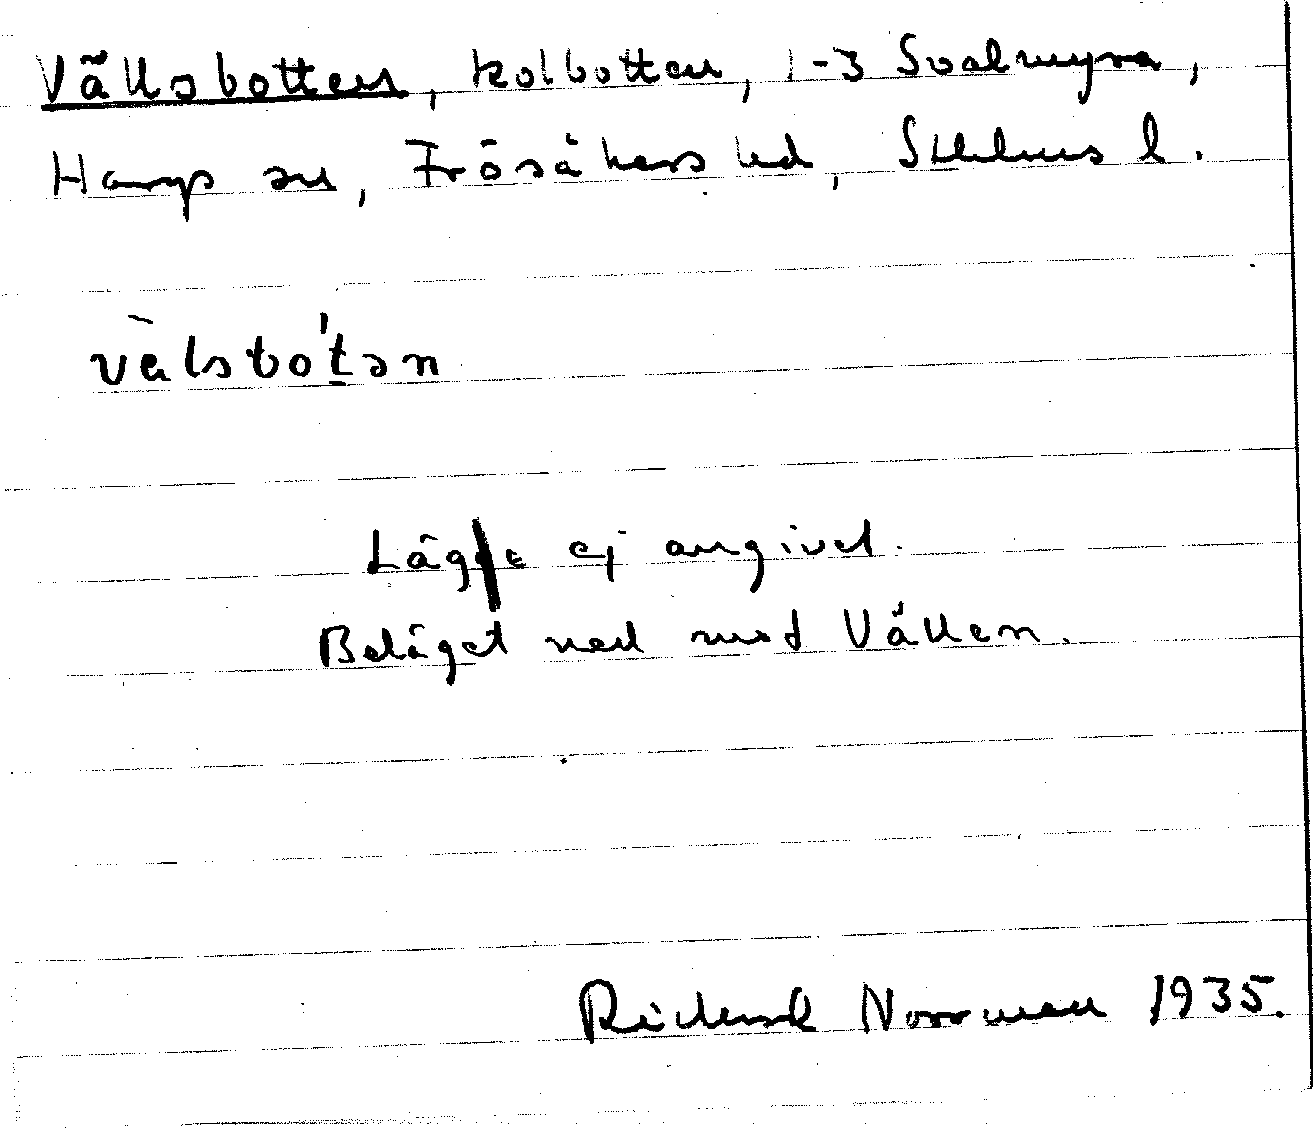 Vällsbotten, kolbotten, 1-3 Svalmyra,
Hargs sn, Frösåkers hd, Sthlms l.
vä̀lsbo't̠ən
Läge ej angivet.
Beläget ned mot Vällen.
Norrman 1935.